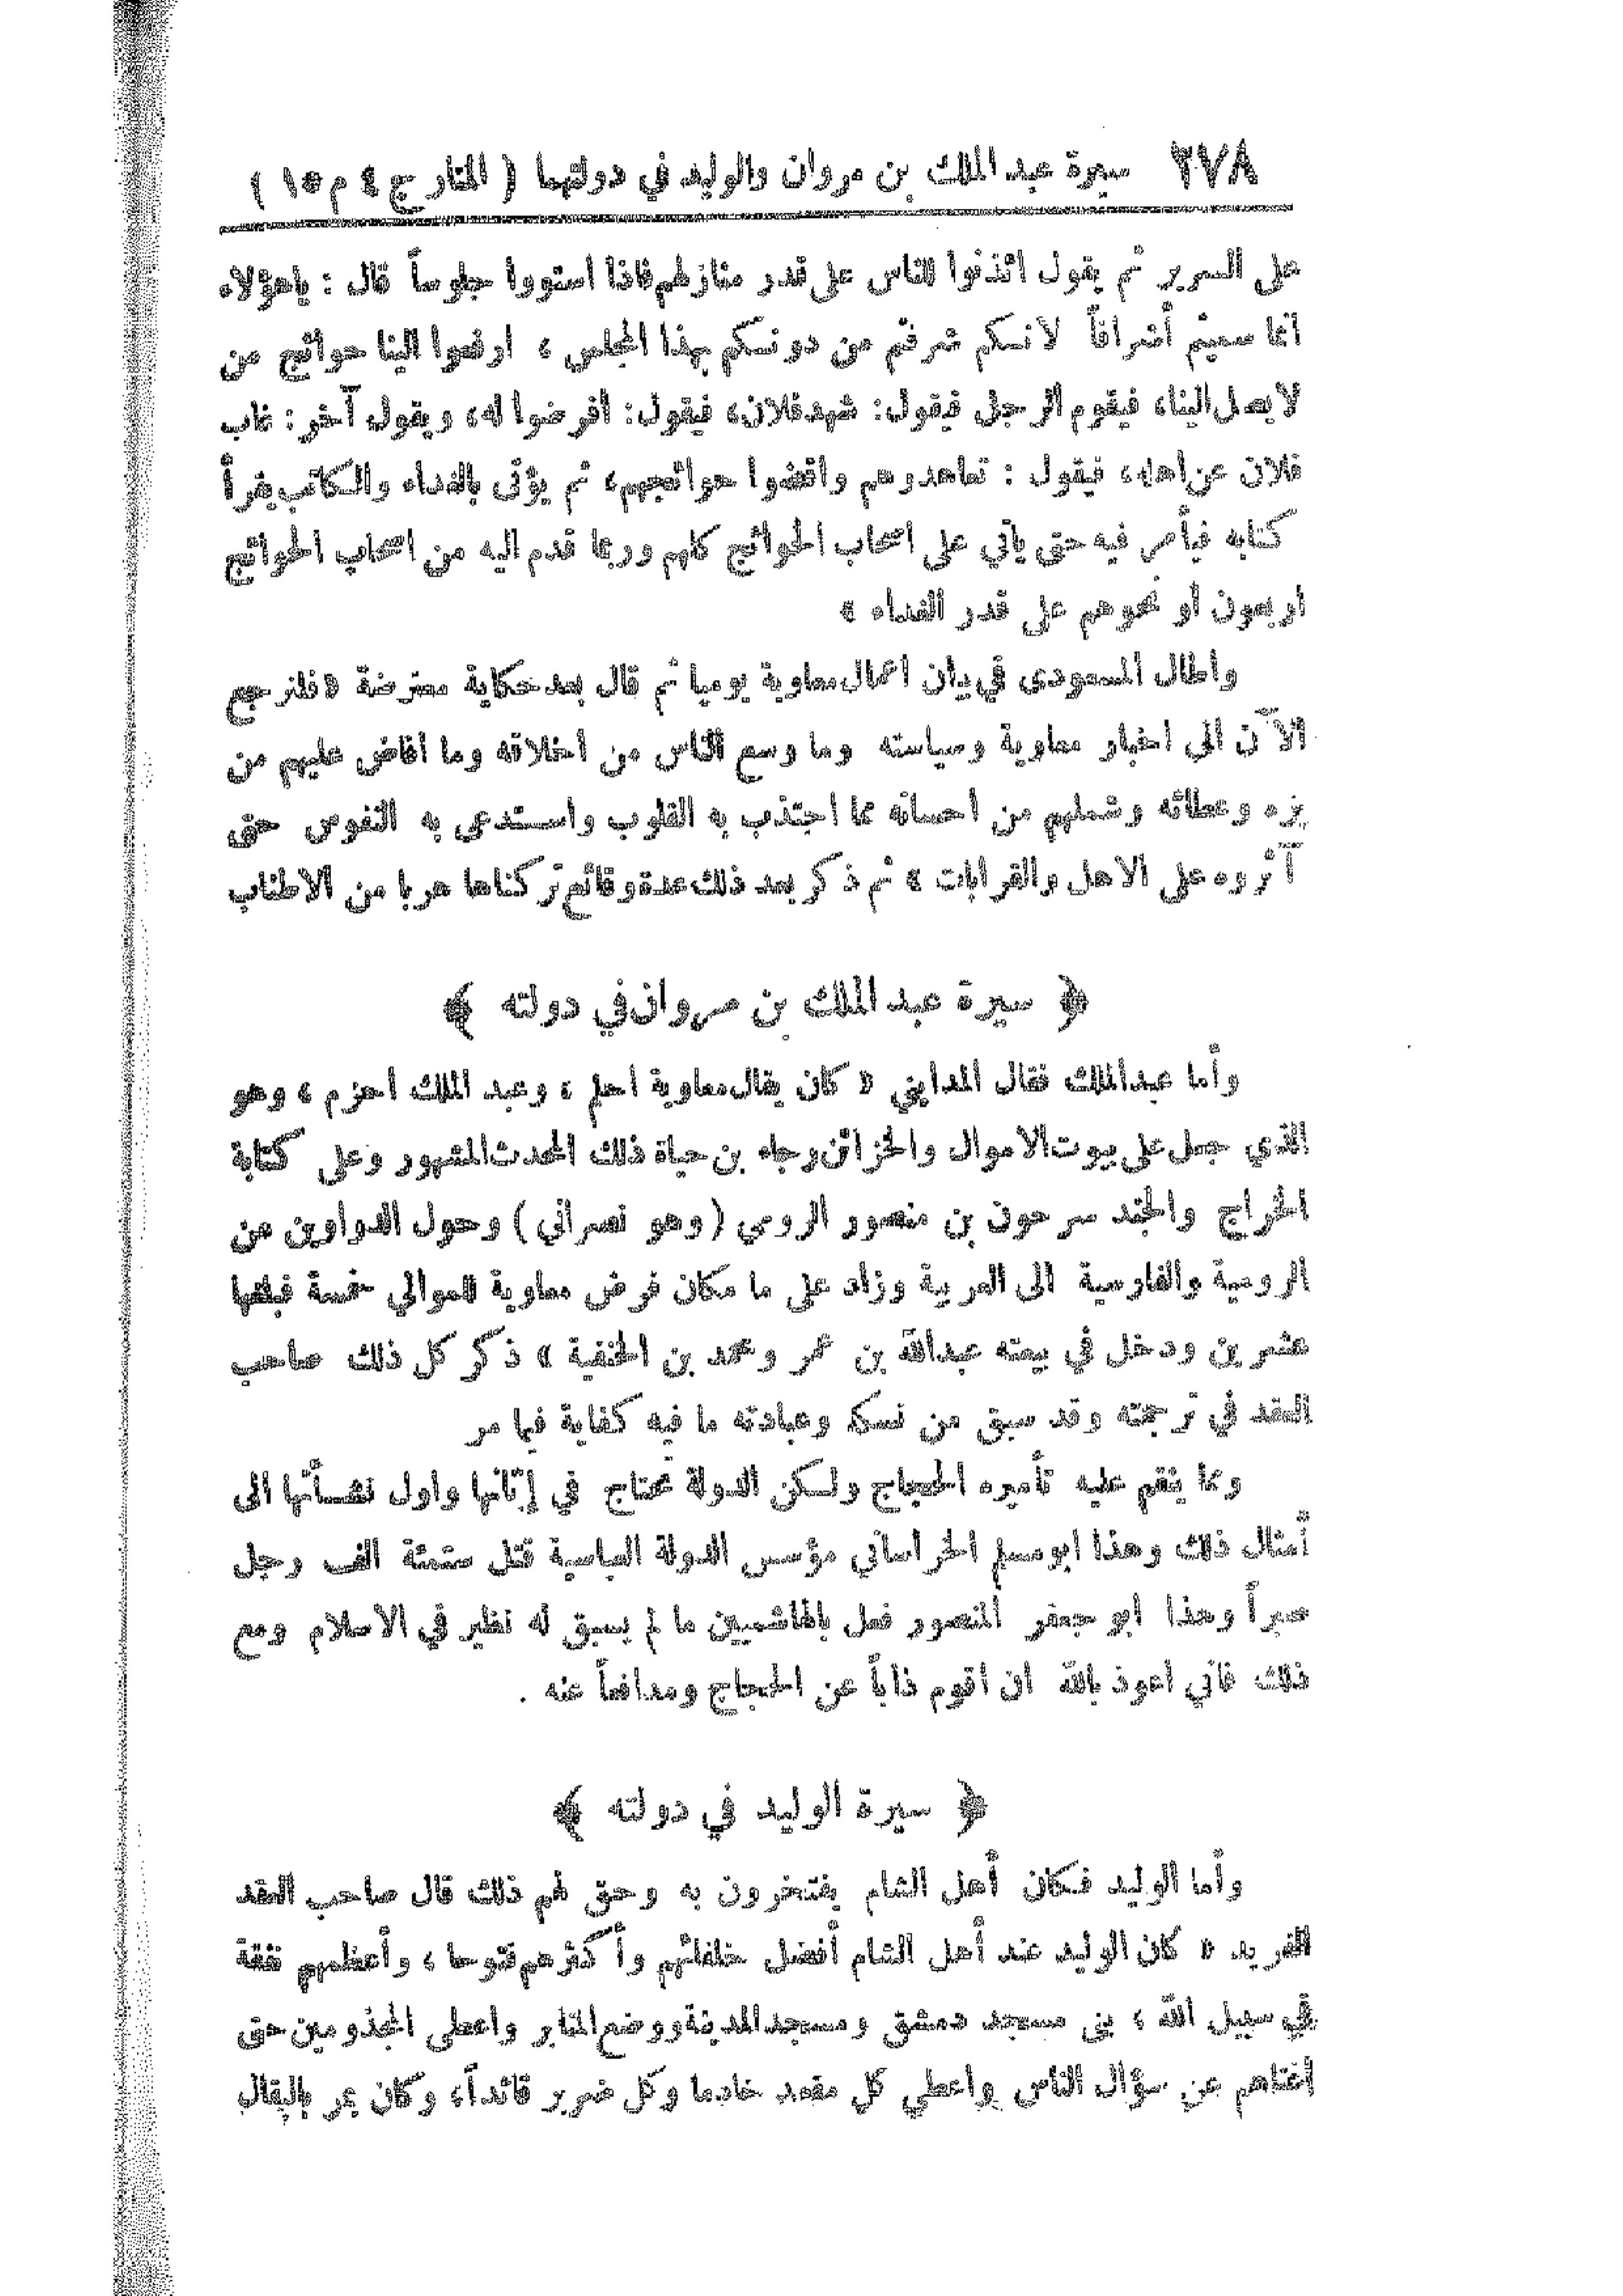 ٢٧٨ سيرة عبد الملك بن مروان والوليد في دولتهما ( المنار ج ٤ م ١٥ )
على السرير ثم يقول ائذنوا للناس على قدر منازلهم فاذا استووا جلوساً قال : ياهؤلاء
انما سميتم أشرافاً لانكم شرفتم من دونكم بهذا المجلس ، ارفعوا الينا حوائج من
لا يصل الينا، فيقوم الرجل فيقول: شهد فلان، فيقول: افرضوا له، ويقول آخر: غاب
فلان عن اهله، فيقول : تعاهدوهم واقضوا حوائجهم، ثم يؤتى بالغداء والكاتب يقرأ
كتابه فيأمر فيه حتى يأتي على اصحاب الحوائج كلهم وربما قدم اليه من اصحاب الحوائج
اربعون أو نحوهم على قدر الغداء »
واطال المسعودى في بيان اعمال معاوية يوميا ثم قال بعد حكاية معترضة « فلنرجع
الآن الى اخبار معاوية وسياسته وما وسع الناس من أخلاقه وما أفاض عليهم من
بره وعطائه وشملهم من احسانه مما اجتذب به القلوب واستدعى به النفوس حتى
آثروه على الاهل والقرابات » ثم ذكر بعد ذلك عدة وقائع تركناها هربا من الاطناب
﴿ سيرة عبد الملك بن مروان في دولته ﴾
وأما عبدالملك فقال المدايني « كان يقال معاوية احلم ، وعبد الملك احزم ، وهو
الذي جعل على بيوت الاموال والخزائن رجاء بن حياة ذلك المحدث المشهور وعلى كتابة
الخراج والجند سرحون بن منصور الرومي (وهو نصراني) وحول الدواوين من
الرومية والفارسية الى العربية وزاد على ما مكان فرض معاوية للموالي خمسة فبلغها
عشرين ودخل في بيعته عبدالله بن عمر ومحمد بن الحنفية » ذكر كل ذلك صاحب
العقد في ترجمته وقد سبق من نسكه وعبادته ما فيه كفاية فيما مر
ومما ينقم عليه تأميره الحجاج ولكن الدولة تحتاج في إبّانها واول نشأتها الى
أمثال ذلك وهذا ابومسلم الخراساني مؤسس الدولة العباسية قتل ستمئة الف رجل
صبراً وهذا ابو جعفر المنصور فعل بالهاشميين ما لم يسبق له نظير في الاسلام ومع
ذلك فاني اعوذ بالله ان أقوم ذاباً عن الحجاج ومدافعاً عنه .
﴿ سيرة الوليد في دولته ﴾
وأما الوليد فكان أهل الشام يفتخرون به وحق لهم ذلك قال صاحب العقد
الفريد « كان الوليد عند أهل الشام أفضل خلفائهم وأكثرهم فتوحا ، وأعظمهم نفقة
في سبيل الله ، بنى مسجد دمشق ومسجد المدينة ووضع المنابر واعطى المجذومين حتى
أغناهم عن سؤال الناس واعطي كل مقعد خادما وكل ضرير قائداً، وكان يمر بالبقال